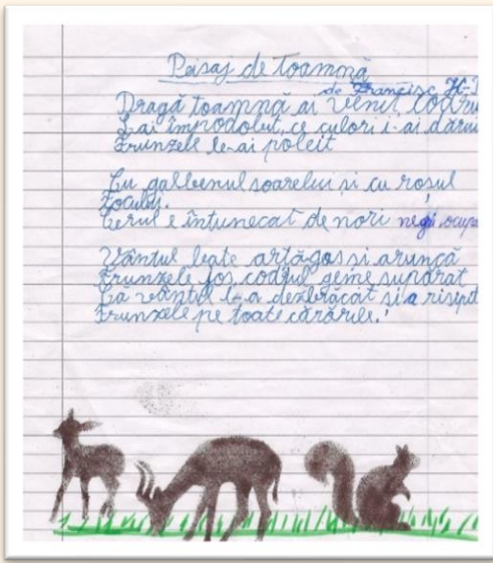 Peisaj de toamnă
de Francisc H-I
Dragă toamnă ai venit, codru
I-ai împodobit, ce culori i-ai dărui
Frunzele le-ai poleit
Cu galbenul soarelui și cu roșul
focului.
Cerul e întunecat de nori negri ocupa
Vântul bate arțăgos și aruncă
Frunzele jos, codrul geme supărat
Că vântul l-a dezbrăcat și a risipit
Frunzele pe toate cărările!